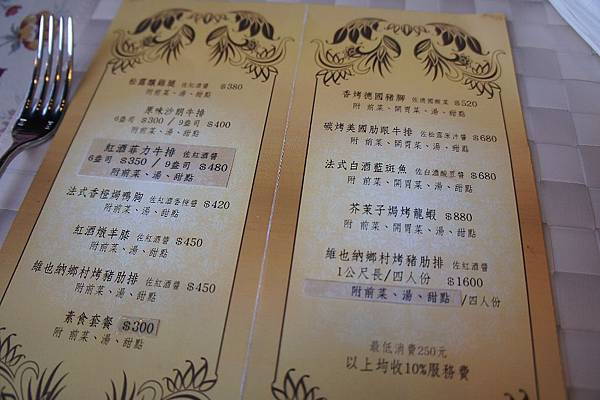 松露釀雞號 佐紅酒醬 $380
附前菜、湯、甜點
原味沙朗牛排
6盎司 $300 / 9盎司 $400
附前菜、湯、甜點
紅酒菲力牛排 佐紅酒醬
6盎司 $350 / 9盎司 $480
附前菜、湯、甜點
法式香橙焗鴨胸 佐紅酒香橙醬 $420
附前菜、湯、甜點
紅酒燉羊膝 佐紅酒醬 $450
附前菜、湯、甜點
維也納鄉村烤豬肋排 佐紅酒醬 $450
附前菜、湯、甜點
素食套餐 $300
附 前菜、湯、甜點
香烤德國豬腳 佐德國酸菜 $520
附 前菜、開胃菜、湯、甜點
碳烤美國肋眼牛排 佐松露米汁醬 $680
附 前菜、開胃菜、湯、甜點
法式白酒藍斑魚 佐白酒酸豆醬 $680
附 前菜、開胃菜、湯、甜點
芥茉子焗烤龍蝦 $880
附 前菜、開胃菜、湯、甜點
維也納鄉村烤豬肋排 佐紅酒醬
1公尺長/四人份 $1600
附前菜、湯、甜點 /四人份
最低消費250元
以上均收10%服務費